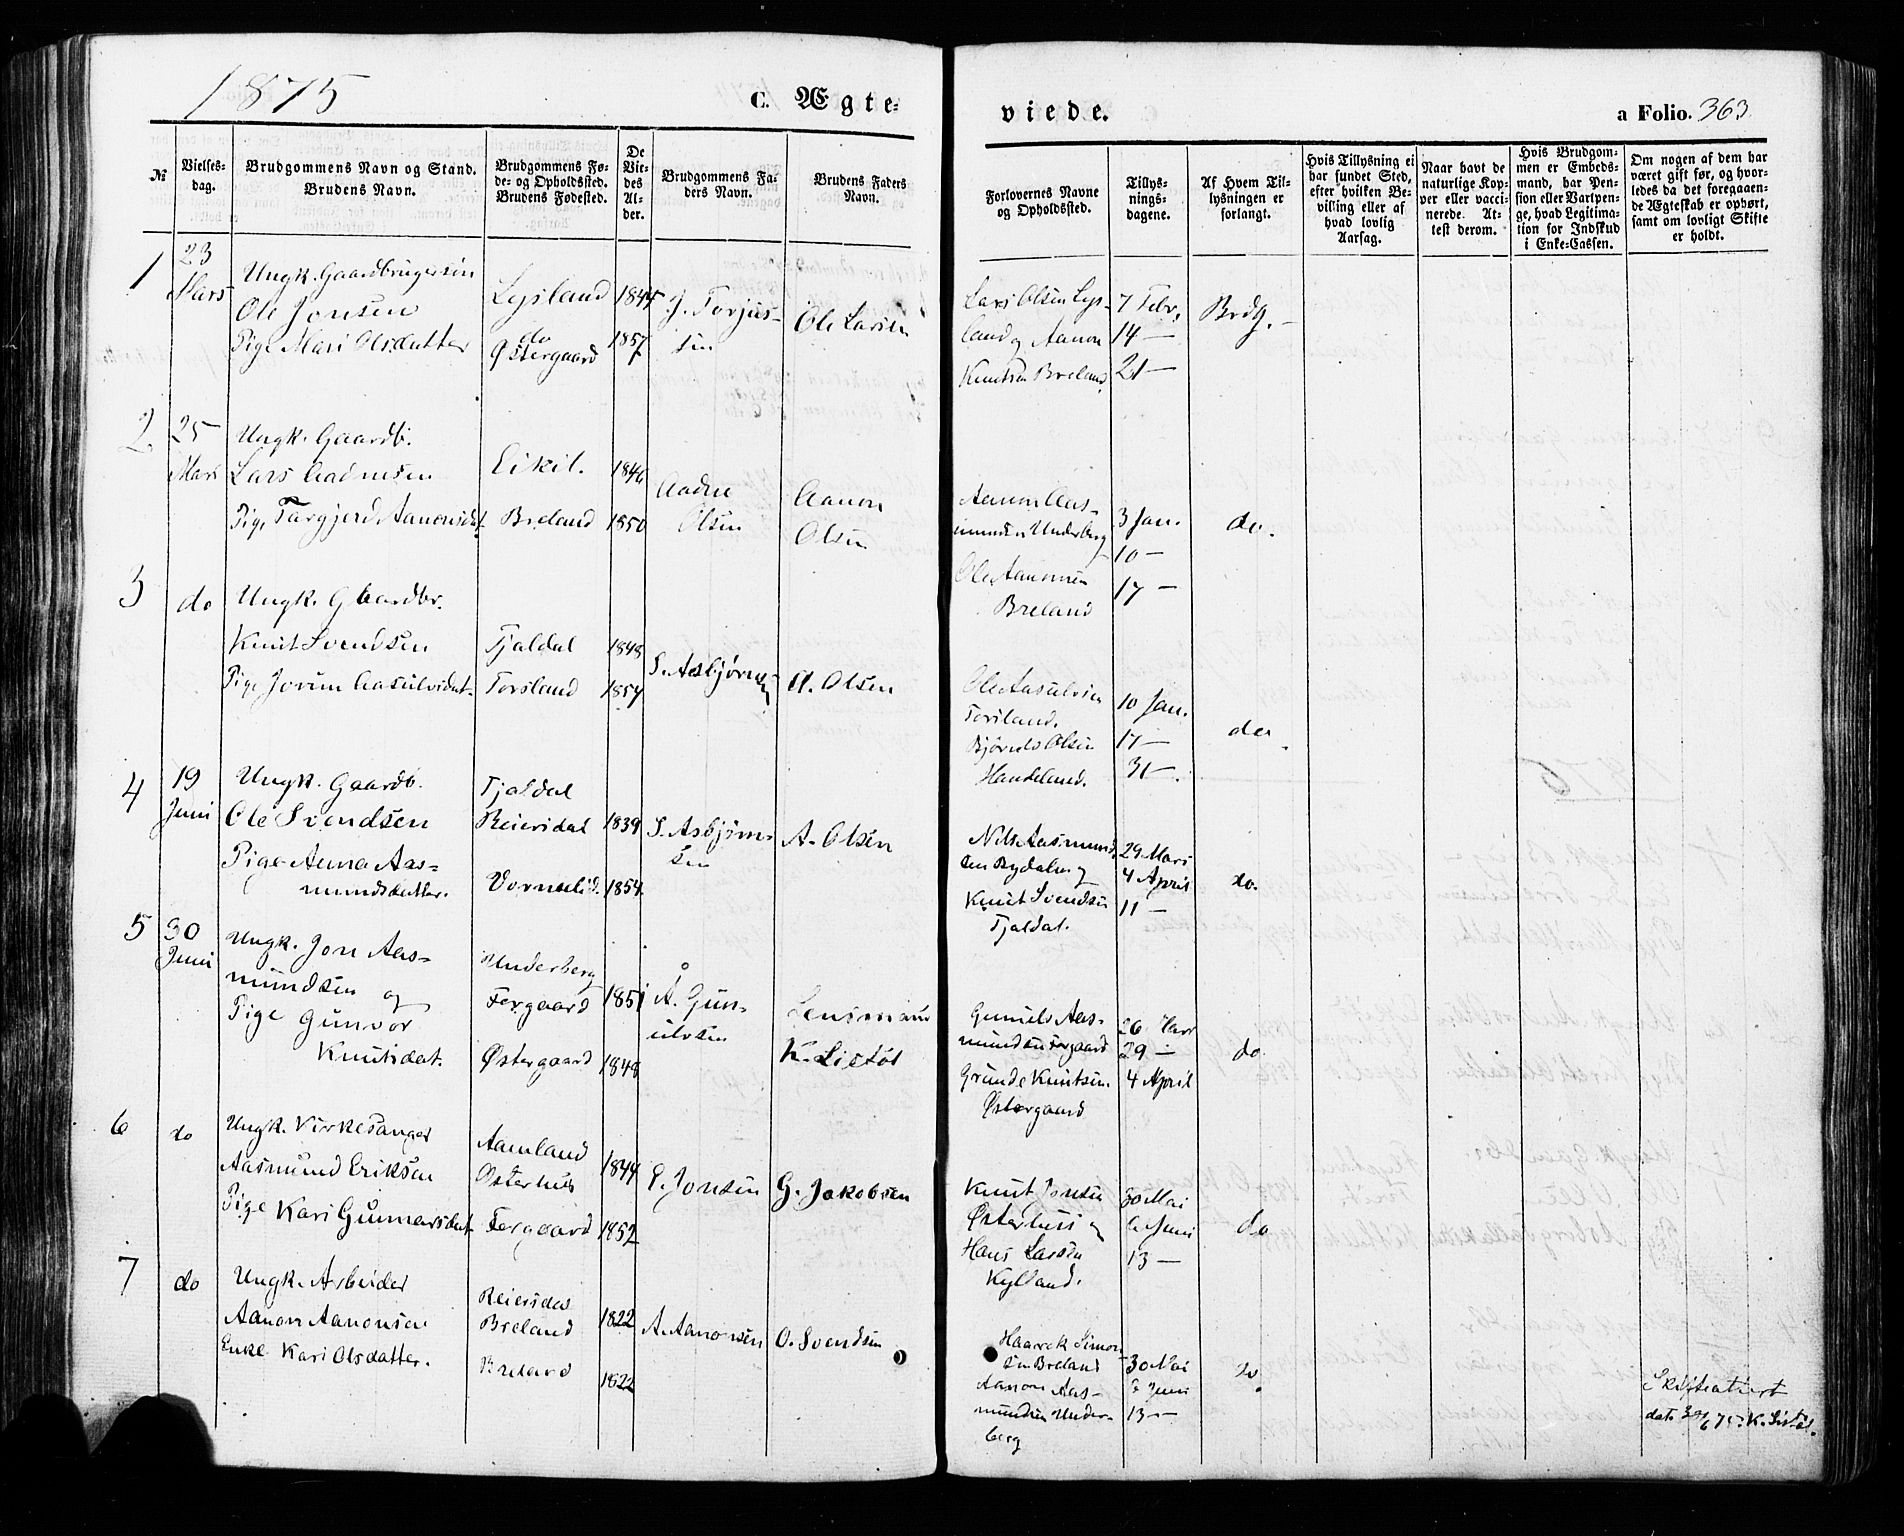 1875
C. Ægte-
viede.
a Folio. 363
№
Vielses-
dag.
Brudgommens Navn og Stand.
Brudens Navn.
Brudgommens Fø-
de- og Opholdssted.
Brudens Fødested.
De
Vie-
des
Al-
der.
Brudgommens Fa-
ders Navn.
Brudens Faders
Navn.
Forlovernes Navne
og Opholdssted.
Tillys-
nings-
dagene.
Af Hvem Til-
lysningen er
forlangt.
Hvis Tillysning ei
har fundet Sted,
efter hvilken Be-
villing eller af
hvad lovlig
Aarsag.
Naar havt de
naturlige Kop-
per eller vacci-
nerede. At-
test derom.
Hvis Brudgom-
men er Embeds-
mand, har Pen-
sion eller Vartpen-
ge, hvad Legitima-
tion for Indskud
i Enke-Cassen.
Om nogen af dem har
været gift før, og hvor-
ledes da det foregaaen-
de Ægteskab er ophørt,
samt om lovligt Skifte
er holdt.
1
23
Mars
Ungk. Gaardbrugersøn
Ole Jonsen
Pige Mari Olsdatter
Lysland
do
Østergaard
1844
1857
J. Torjus-
sen
Ole Larsen
Lars Olsen Lys-
land og Aanon
Knutsen Breland
7 Febr.
14 —
21 —
Brdg. —
2
25
Mars
Ungk. Gaardb.
Lars Aadnesen
Pige Targjerd Aanonsdat.
Eikil.
Breland
1846
1850
Aadne
Olsen
Aanon
Olsen
Aanon Aas-
mundsen Underberg
Ole Aanonsen
Breland
3 Jan.
10 —
17 —
do.
3
do
Ungk. Gaardbr.
Knut Svendsen
Pige Jorun Aasulvsdat.
Tjaldal
Torsland
1848
1854
S. Asbjørnsen
A. Olsen
Ole Aasulvsen
Torsland.
Bjørulv Olsen
Handeland.
10 Jan.
17 —
31 —.
do
4
19
Juni
Ungk. Gaardb.
Ole Svendsen
Pige Anna Aas-
mundsdatter.
Tjaldal
Reiersdal
Vormelid.
1839
1854
S. Asbjørn-
sen
A. Olsen
Nils Aasmund-
sen Rydalen og
Knut Svendsen
Tjaldal.
29 Mars
4 April
11 —
do.
5
30
Juni
Ungk. Jon Aas-
mundsen og
Pige Gunvor
Knutsdat.
Underberg
Forgaard
Østergaard
1851
1848
Å. Gun-
ulvsen
Lensmand
K. Listøl
Gunulv Aas-
mundsen Forgaard
Grunde Knutsen
Østergaard
26 Mars
29 —
4 April
do
6
do
Ungk. Kirkesanger
Aasmund Eriksen
Pige Kari Gunnarsdat
Aamland
Østerhus
Forgaard
1844
1852
E. Jonsen
G. Jakobsen
Knut Jonsen
Østerhus og
Hans Larsen
Kylland.
30 Mai
6 Juni
13 —
do
7
do
Ungk. Arbeider
Aanon Aanonsen
Enke Kari Olsdatter.
Reiersdal
Breland
Breland
1822
1822
A. Aanonsen
O. Svendsen
Haavek Simon-
sen Breland
Aanon Aas-
mundsen Under-
berg
30 Mai
6 Juni
13 —
do
Skifteattest
dat. 30/6 75. K. Listøl.